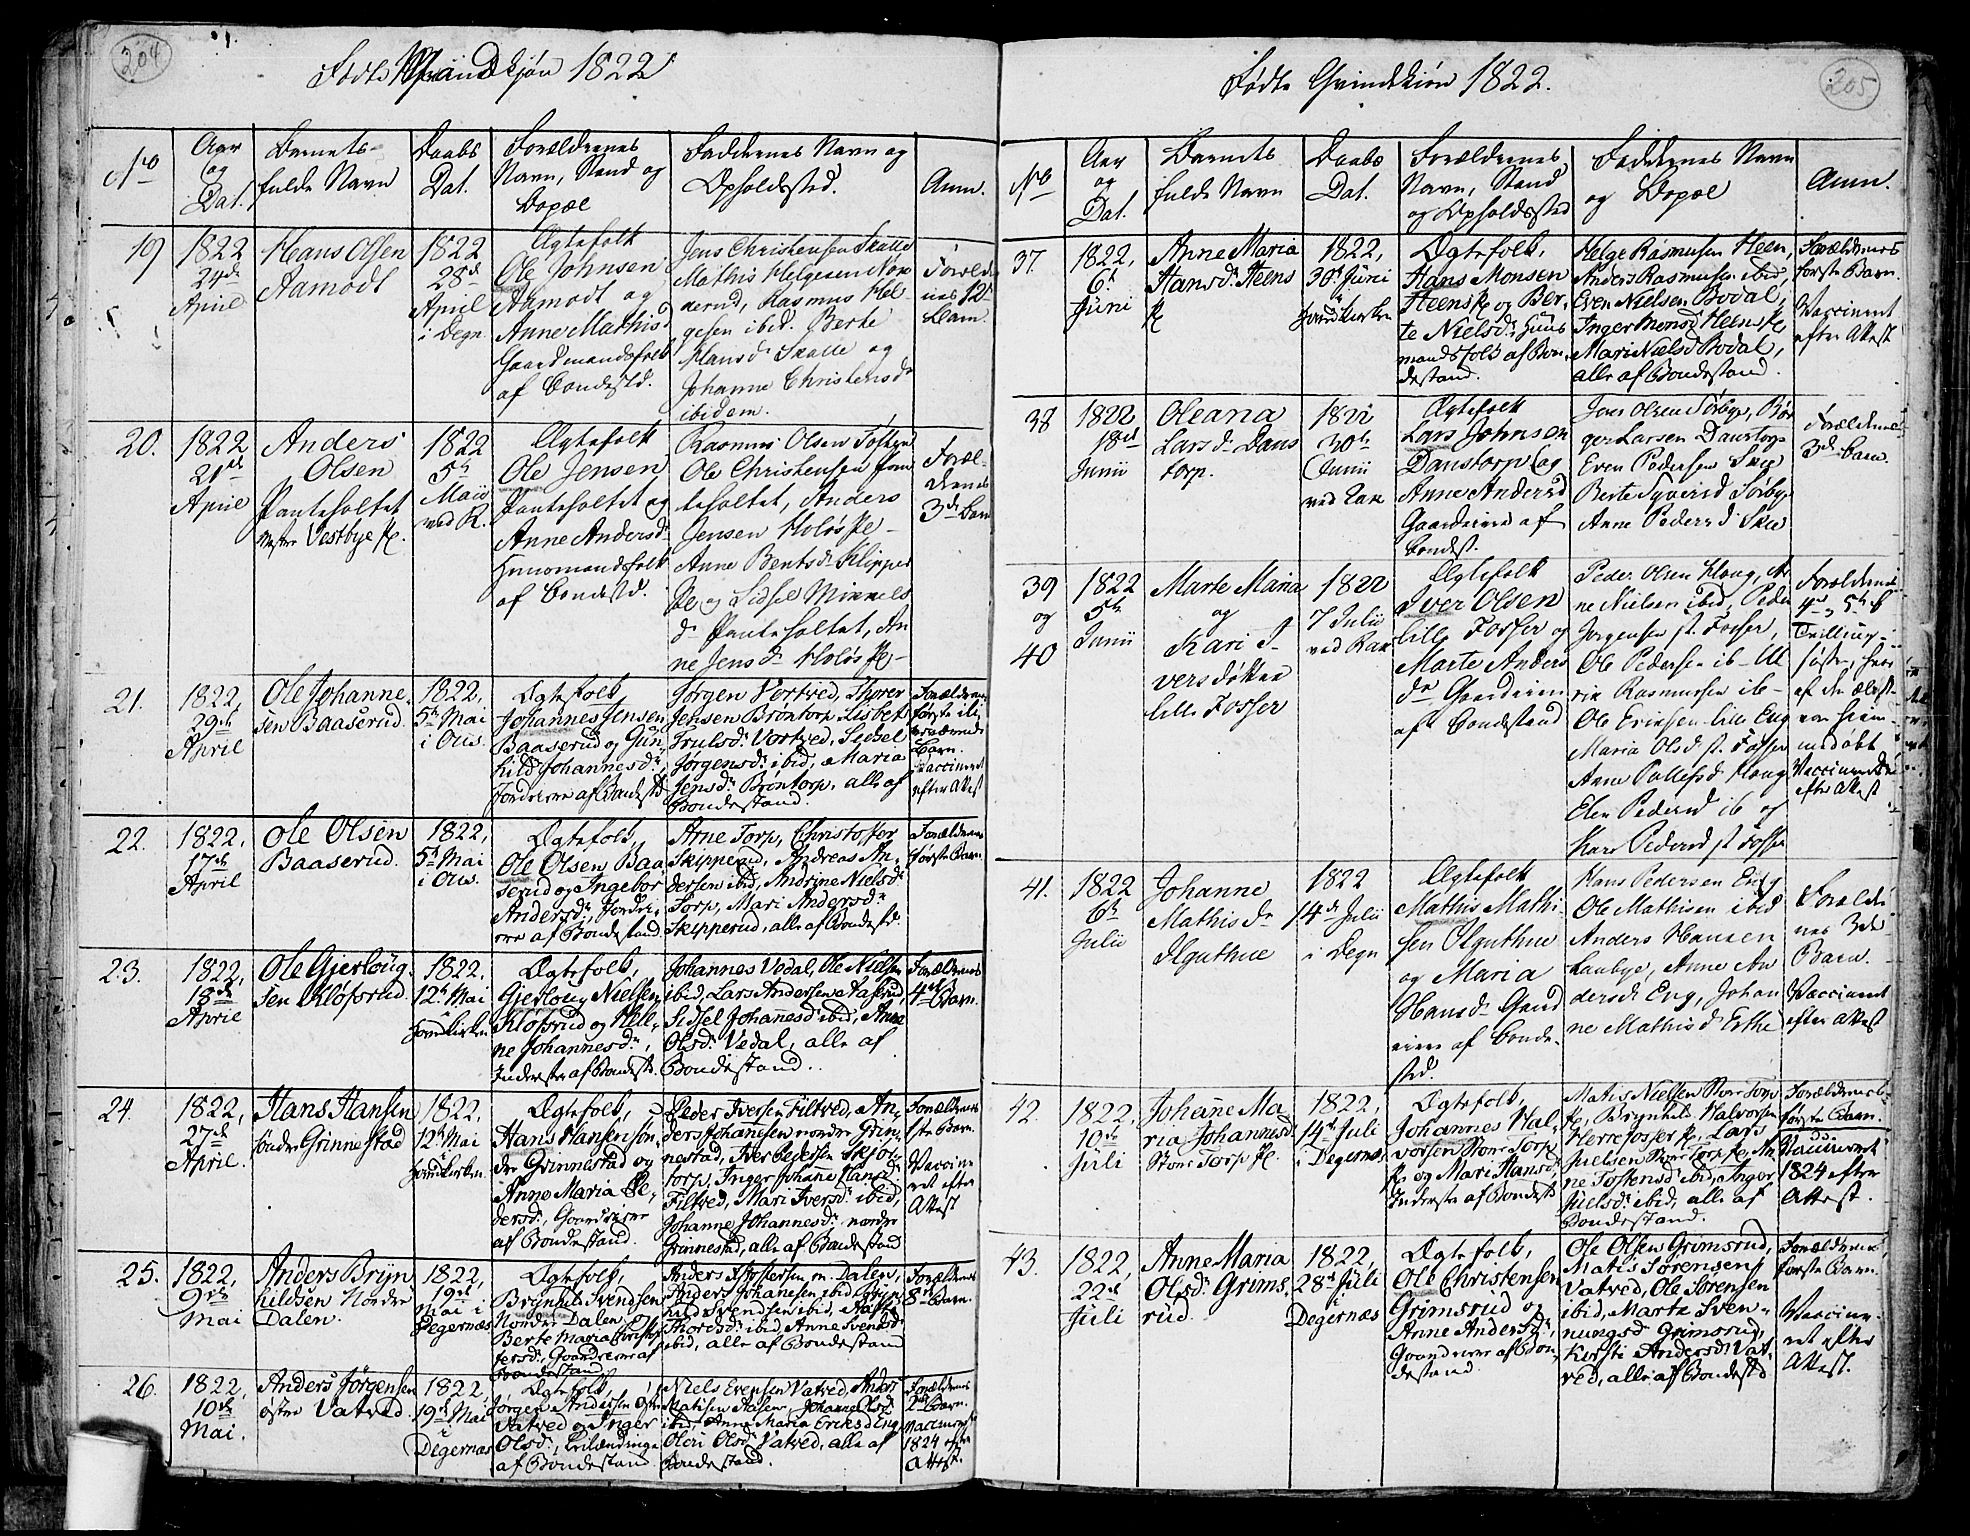 204
Fødte Mandkjøn 1822
No
Aar
og
Dat.
Barnets
fulde Navn
Daabs
Dat.
Forældrenes
Navn, Stand og
Bopæl
Faddernes Navn og
Opholdssted.
Anm.
19
1822
24de
April
Hans Olsen
Aamodt
1822
28de
April
i Degn
Ægtefolk
Ole Johnsen
Aamodt og
Anne Mathisd
Gaardmandsfolk
af Bondestd.
Jens Christensen Skalle
Mathis Helgesen
Rasmus Hel
gesen ibid. Berte
Hansd Skalle og
Johanne Christensd
ibidem.
Foræld
nes 12
Barn.
20.
1822
21de
April
Anders
Olsen
Panteholtet
Vestbye
1822
5te
Maii
ved R.
Ægtefolk
Ole Jensen
Panteholtet og
Anne Andersd
Huusmandsfolk
af Bondestd.
Rasmus Olsen
Ole Christensen Pan
teholtet, Anders
Jensen Holøs
Anne Bentsd
og Sidsel
d Panteholtet, An
ne Jensd Holøs
Foræl-
drenes
3de Barn
21.
1822,
29de
April
Ole Johanne-
sen Baaserud.
1822,
5te Mai
i Øis.
Ægtefolk,
Johannes Jensen
Baaserud og Gun-
hild Johannesdr,
Jordeiere af Bondestd
Jørgen Vortved, Thorer
Jensen Brøntorp, Lisbet
Trulsdr Vortved, Sidsel
Jørgensdr ibid, Maria
Jensdr Brøntorp, alle af
Bondestand.
Forældrenes
første
Barn.
Vaccineret
efter Attest
22.
1822,
17de
April
Ole Olsen
Baaserud.
1822,
5te Mai
i Øis.
Ægtefolk,
Ole Olsen Baa
serud og Ingebor
Andersdr, Jordei-
ere af Bondestand.
Arne Torp, Christoffer
Skipperud, Andreas An-
dersen ibid, Andrine Nielsdr
Torp, Mari Andersdr
Skipperud, alle af Bondestd.
Forældrenes
første Barn.
23.
1822,
18de
April
Ole Gjerloug-
sen Kløfsrud.
1822.
12te Mai
i
Hovedkirken
Ægtefolk,
Gjerloug Nielsen
Kløfsrud og Hele-
ne Johannesdr,
Inderster af Bondestd.
Johannes Vedal, Ole Nielsen
ibid, Lars Andersen Aaserud,
Sidsel Johannesd ibid, Anne
Olsdr Vedal, alle af
Bondestand.
Forældrenes
4de Barn.
24.
1822,
27de
April.
Hans Hansen
søndre Grinnestad
1822,
12te Mai
i
Hovedkirken.
Ægtefolk,
Hans Hansen søn-
dre Grinnestad og
Anne Maria Pe-
dersdr, Gaardeiere
af Bondestand.
Peder Iversen Filtved, An-
ders Johannesen nordre Grin-
nestad, Iver Pedersen Skjol-
torp, Inger Johanne Hansdr
Filtved, Mari Iversdr ibid,
Johanne Johannesdr nordre
Grinnestad, alle af Bondestand
Forældrenes
1ste Barn.
Vaccine-
ret efter
Attest
25.
1822,
9de
Mai
Anders Bryn
hildsen Nordre
Dalen.
1822,
19de
Mai i
Degernæs
Ægtefolk,
Brynhil Svendsen
Nordre Dalen,
Berte Maria Christof
fersdr, Gaardeiere af
Bondestand
Anders
Dalen,
Anders Johannesen ibid, Bryn
hild Svendsen ibid,
Thordsdr ibid, Anne Svendsdr
ibid, alle af Bondestand
Forældrenes
8de Barn.
26.
1822,
10de
Mai.
Anders Jørgensen
østre Vatved.
1822,
19de Mai
i
Degernæs
Ægtefolk,
Jørgen Andersen Østre
Vatved og Inger
Olsdr,
af Bondestand.
Niels Evensen Vatved, Anders
Matisen Aasen, Johanne Olsd
ibid, Anne Maria Eriksd Eng,
Oleri Olsd Vatved, alle af
Bondestand.
Forældrenes
2det Barn.
Vaccineret
1824 efter
Attest.
205
Fødte Qvindekiøn 1822.
No
Aar
og
Dat.
Barnets
fulde Navn
Daabs
Dat.
Forældrenes
Navn, Stand
og Opholdssted
Faddernes Navn
og Bopæl
Anm.
37.
1822,
6te
Juni
Anne Maria
Hansd. Heens
1822,
30te Juni
i
Hovedkirken
Ægtefolk,
Hans Monsen
Heens og Ber-
te Nielsdr, Huus
mandsfolk af Bon-
destand.
Helge Rasmusen Heen,
Anders Rasmusen ibid,
Even Nielsen Bodal,
Inger Monsd Heens
Mari Nielsd Bodal,
alle af Bondestand.
Forældrenes
første Barn.
Vaccineret
efter Attest
38
1822
18de
Junii
Oleana
Larsd Dans
torp.
1822
30te
Junii
ved Rak
Ægtefolk
Lars Johnsen
Danstorp og
Anne Andersd
Gaardeiere af
Bondest.
Jens Olsen Sørbye, Bør
ger Larsen Danstorp
Even Pedersen Skie
Berte Syversd Sørbye
Anne Pedersd Skie
Forældrenes
3de Barn.
39
og
40
1822
5te
Junii
Marte Maria
og
Kari I-
versdøttre
lille Fosser
1822
7 Julii
ved Rak
Ægtefolk
Iver Olsen
lille Fosser og
Marte Anders
dr Gaardeiere
af Bondestand
Peder Olsen Haug, Ar
ne Nielsen ibid, Peder
Jørgensen st. Fosser,
Ole Pedersen ib-
Rasmusen ib-
Ole Eriksen lille Eng
Maria Olsd st. Fosser
Anne Pallesd Haug
Elen Pedersd ib og
Kari Pedersd st Fosser
Forældrenes
4de og 5te B
Tvilling-
søstre, hvor
af den ældst-
var hiem-
medøbt
Vaccinerede
efter Attest
41.
1822
6te
Julii
Johanne
Mathisdr
Olguthue
1822
14de Julii
i Degn
Ægtefolk
Mathis Mathi-
sen Olguthue
og Maria
Hansdr Gaard
eiere af Bonde-
std.
Hans Pedersen Eng
Ole Mathisen ibid
Anders Hansen
Haabye, Anne An
dersdr Eng, Johan
ne Mathisd Erthe
Forældre
nes 3de
Barn.
Vaccineret
efter Attest
42
1822,
10de
Juli
Johanne Ma-
ria Johannesd
Store Torp
1822,
14de Juli
i Degernæs
Ægtefolk,
Johannes Hal-
vorsen Store Torp
og Mari Hansdr
Inderster af Bondestd
Matis Nielsen Store Torp
Brynhil Halvorsen
Herrefosser, Lars
Juelsen Store Torp, An
ne Tostensd ibid, Inger
Juelsdr ibid, alle af
Bondestand.
Forældrenes
første Barn.
Vaccineret
1824 efter
Attest.
43.
1822,
22de
Juli
Anne Maria
Olsdr Grims-
rud.
1822,
28de Juli
i
Degernæs
Ægtefolk,
Ole Christensen
Grimsrud og
Anne Andersdr,
Gaardeiere af Bon-
destand.
Ole Olsen Grimsrud,
Matis Sørensen
Vatved, Ole Sørensen
ibid, Marte Sven-
nungsd Grimsrud,
Kirsti Andersd Vat-
ved, alle af Bondestd
Forældrenes
første Barn.
Vaccine-
ret efter
Attest.